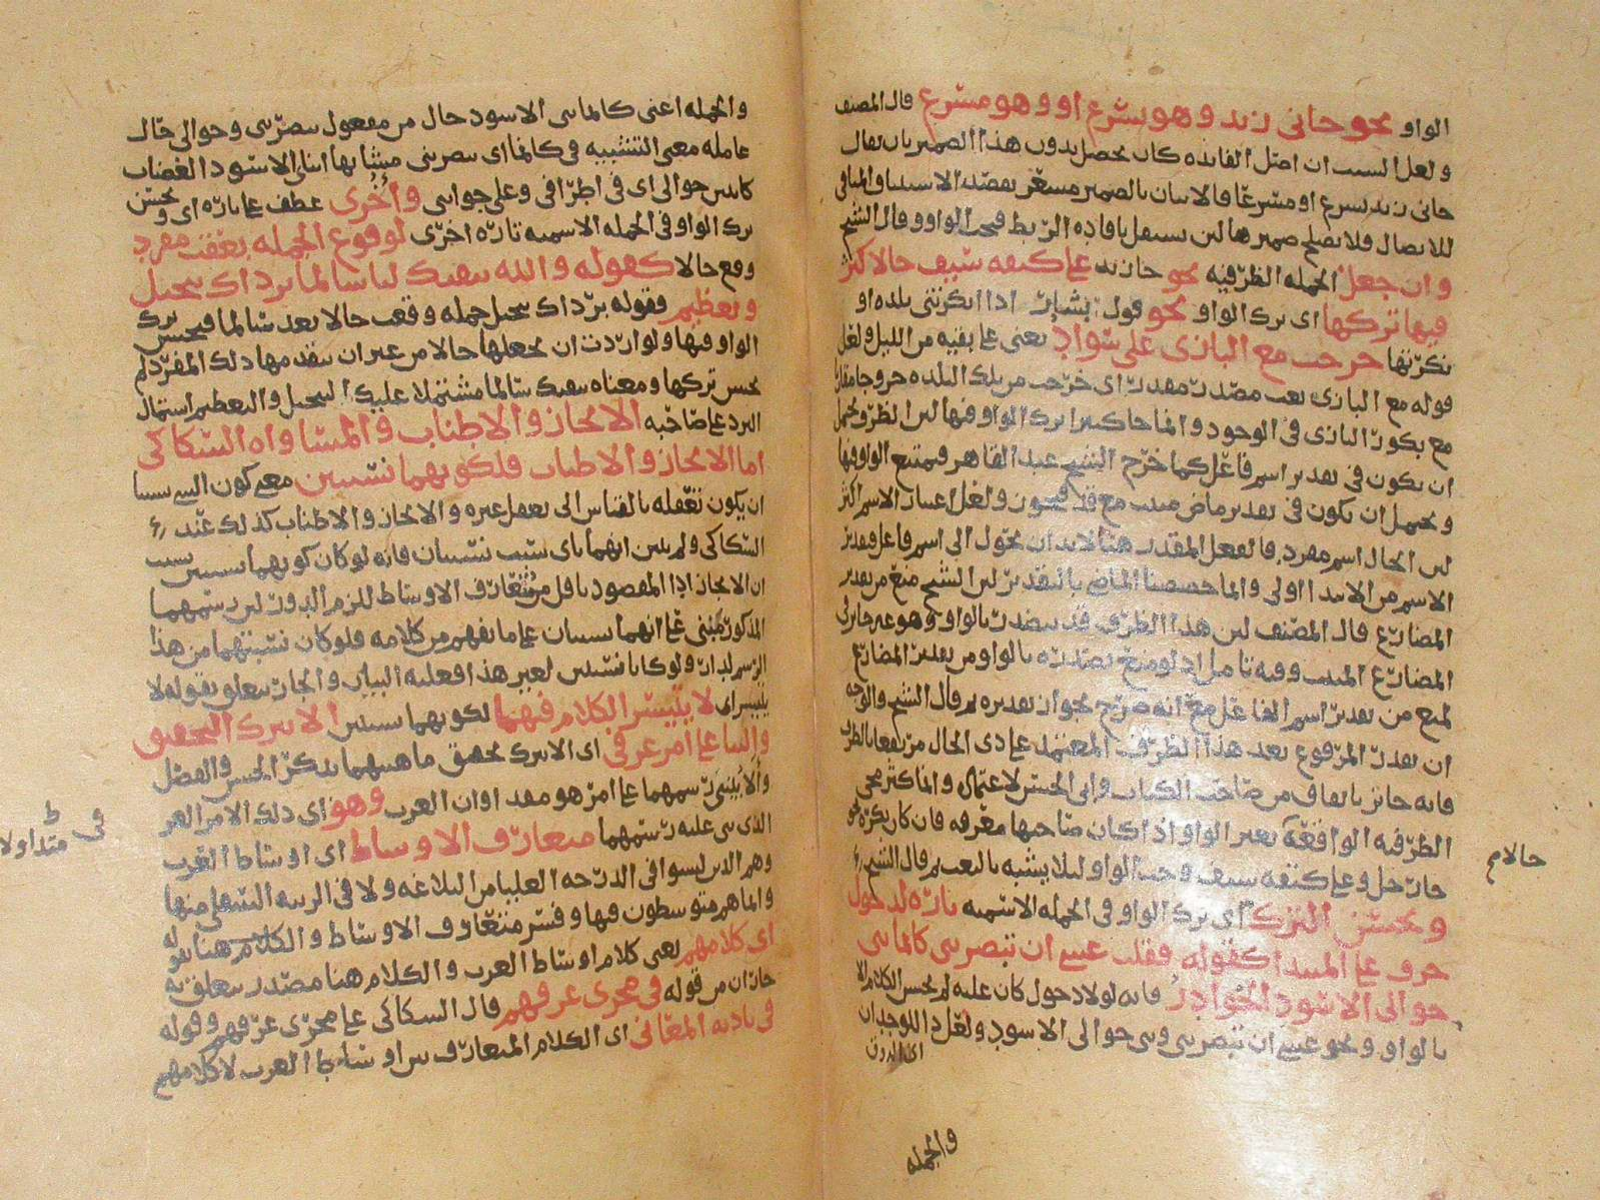 الواو نحو جاني زيد وهو يسرع او وهو مسرع قال المصنف
ولعل السبب ان اصل الفايده كان يحصل بدون هذا الضمير بان يقال
جاني زيد يسرع او مسرعا فالاتيان بالضمير مشعر بقصد الاستيناف المنافي
للاتصال فلا يصلح ضميرها لان يستقل بافاده الربط فيجب الواو وقال الشيخ
وان جعل الجمله الظرفيه نحو جا زيد على كتفه سيف حالا كثر
فيها تركها اى ترك الواو نحو قول بشار اذا انكرتني بلده او
نكرتها خرجت مع البازى على سواد يعنى على بقيه من الليل ولعل
قوله مع البازى نعت مصدر مقدر اى خرجت من تلك البلده خروجا مقارنا
مع بكور البازى فى الوجود وانما جا كثيرا ترك الواو فيها لان الظرف يحتمل
ان يكون فى تقدير اسم فاعل كما خرج الشيخ عبد القاهر فيمتنع الواو فيها
ويحتمل ان يكون فى تقدير ماض مثبت مع قد فيجوز ولعل اعتبار الاسم اكثر
لان الحال اسم مفرد فالفعل المقدر هنا لابد ان يحول الى اسم فاعل فتقدير
الاسم من الابتدا اولى وانما خصصنا الماضى بالتقدير لان الشيخ منع من تقدير
المضارع قال المصنف لان هذا الظرف قد يصدر بالواو وهو غير جايز فى
المضارع المثبت وفيه تامل اذ لو منع تصدره بالواو من تقدير المضارع
لمنع من تقدير اسم الفاعل مع انه صرح بجواز تقديره ثم قال الشيخ والوجه
ان يقدر المرفوع بعد هذا الظرف المعتمد على ذى الحال مرتفعا بالظرف
فانه جايز باتفاق من صاحب الكتاب وابى الحسن لاعتماده وانما كثر مجى
الظرفيه الواقعة بغير الواو اذا كان صاحبها معرفه فان كان نكره نحو
جا رجل وعلى كتفه سيف وجب الواو ليلا يشتبه بالنعت ثم قال الشيخ
ويحسن الترك اى ترك الواو فى الجمله الاسميه تاره لدخول
حرف على المبتدا كقوله فقلت عسى ان تبصرينى كانما بنى
حوالى الاسود الحوادر فانه لولا دخول كان عليه لم يحسن الكلام الا
بالواو ونحو عسى ان تبصرينى وبنى حوالى الاسود ولعل
والجمله
حالا م
والجمله اعنى كانما بنى الاسود حال من مفعول تبصرينى وحوالى حال
عامله معنى التشبيه فى كانما اى تبصرينى مشابها ابنائى الاسود الغضاب
كاينين حوالى اى فى اطرافى وعلى جوانبى واخرى عطف على تاره اى ويحسن
ترك الواو فى الجمله الاسميه تاره اخرى لوقوع الجمله بعقب مفرد
وقع حالا كقوله والله يبقيك لنا سالما برداك تبجيل
وتعظيم فقوله برداك تبجيل جمله وقعت حالا بعد سالما فيحسن ترك
الواو فيها ولو اردت ان تجعلها حالا من غير ان يتقدمها ذلك المفرد لم
يحسن تركها ومعناه يبقيك سالما مشتملا عليك التبجيل والتعظيم اشتمال
البرد على صاحبه الايجاز والاطناب والمساواه السكاكى
اما الايجاز والاطناب فلكونهما نسبيين معنى كون الشى نسبيا
ان يكون تعقله بالقياس الى تعقل غيره والايجاز والاطناب كذلك عند
السكاكى ولم يبين انهما باى سبب نسبيان فانه لو كان كونهما نسبيين بسبب
ان الايجاز اداا المقصود باقل من متعارف الاوساط للزم الدور لان رسمهما
المذكور مبنى على انهما نسبيان على ما يفهم من كلامه فلو كان نسبيتهما من هذا
الرسم لدار ولو كانا نسبيين لغير هذا فعليه البيان والجار يتعلق بقوله لا
يتيسر اى لا يتيسر الكلام فيهما لكونهما نسبيين الا بترك التحقيق
والبنا على امر عرفى اى الا بترك تحقيق ماهيتهما بذكر الجنس والفصل
والا يبتنى رسمهما على امر هو مقدا وان العرب وهو اى ذلك الامر العر
الذى بنى عليه رسمهما متعارف الاوساط اى اوساط العرب
وهم الذين ليسوا فى الدرجه العليا من البلاغه ولا فى الرتبه السفلى منها
وانما هم متوسطون فيها وفسر متعارف الاوساط والكلام هنا بقوله
اى كلامهم يعنى كلام اوساط العرب والكلام هنا مصدر يتعلق به
جاران من قوله فى مجرى عرفهم قال السكاكى على مجرى عرفهم وقوله
فى تاديه المعانى اى الكلام المتعارف بين اوساط العرب لا كلامهم
فى متداولا